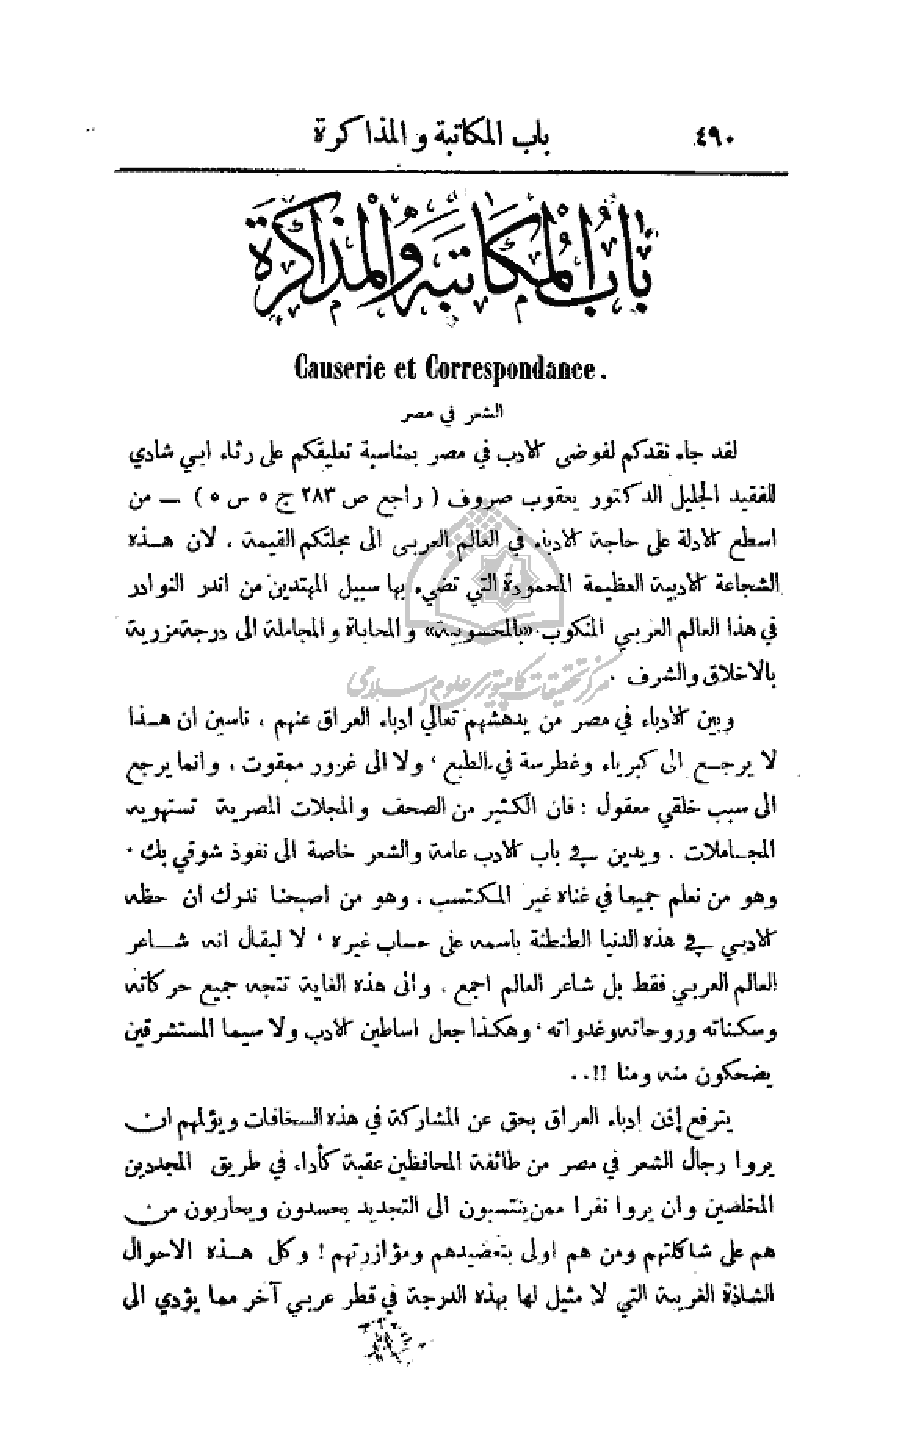 ٤٩٠ باب المكاتبة والمذاكرة
بَابُ الْمُكَاتَبَةِ وَالْمُذَاكَرَةِ
Causerie et Correspondance.
الشعر في مصر
لقد جاء نقدكم لفوضى الادب في مصر بمناسبة تعليقكم على رثاء ابي شادي
للفقيد الجليل الدكتور يعقوب صروف ( راجع ص ٢٨٣ ج ٥ س ٥ ) — من
اسطع الادلة على حاجة الادباء في العالم العربي الى مجلتكم القيمة . لان هـذه
الشجاعة الادبية العظيمة المحمودة التي تضيء بها سبيل المهتدين من اندر النوادر
في هذا العالم العربي المنكوب «بالمحسوبية» والمحاباة والمجاملة الى درجة مزرية
بالاخلاق والشرف .
مركز تحقيقات كامپيوترى علوم اسلامى
وبين الادباء في مصر من يدهشهم تعالي ادباء العراق عنهم ، ناسين ان هـذا
لا يرجـع الى كبرياء وغطرسة في الطبع ، ولا الى غرور ممقوت ، وانما يرجع
الى سبب خلقي معقول : فان الكثير من الصحف والمجلات المصرية تستهويه
المجـاملات . ويدين في باب الادب عامة والشعر خاصة الى نفوذ شوقي بك .
وهو من نعلم جميعا في غناه غير المكتسب . وهو من اصبحنا ندرك ان حظه
الادبي في هذه الدنيا الطنطنة باسمه على حساب غيره ، لا ليقال انه شـاعر
العالم العربي فقط بل شاعر العالم اجمع . والى هذه الغاية تتجه جميع حركاته
وسكناته وروحاته وغدواته ، وهكذا جعل اساطين الادب ولا سيما المستشرقين
يضحكون منه ومنا !! . .
يترفع إذن ادباء العراق بحق عن المشاركة في هذه السخافات ويؤلمهم ان
يروا رجال الشعر في مصر من طائفة المحافظين عقبة كأداء في طريق المجددين
المخلصين وان يروا نفرا ممن ينتسبون الى التجديد يحسدون ويحاربون من
هم على شاكلتهم ومن هم اولى بتعضيدهم ومؤازرتهم ! وكل هـذه الاحوال
الشاذة الغريبة التي لا مثيل لها بهذه الدرجة في قطر عربي آخر مما يؤدي الى